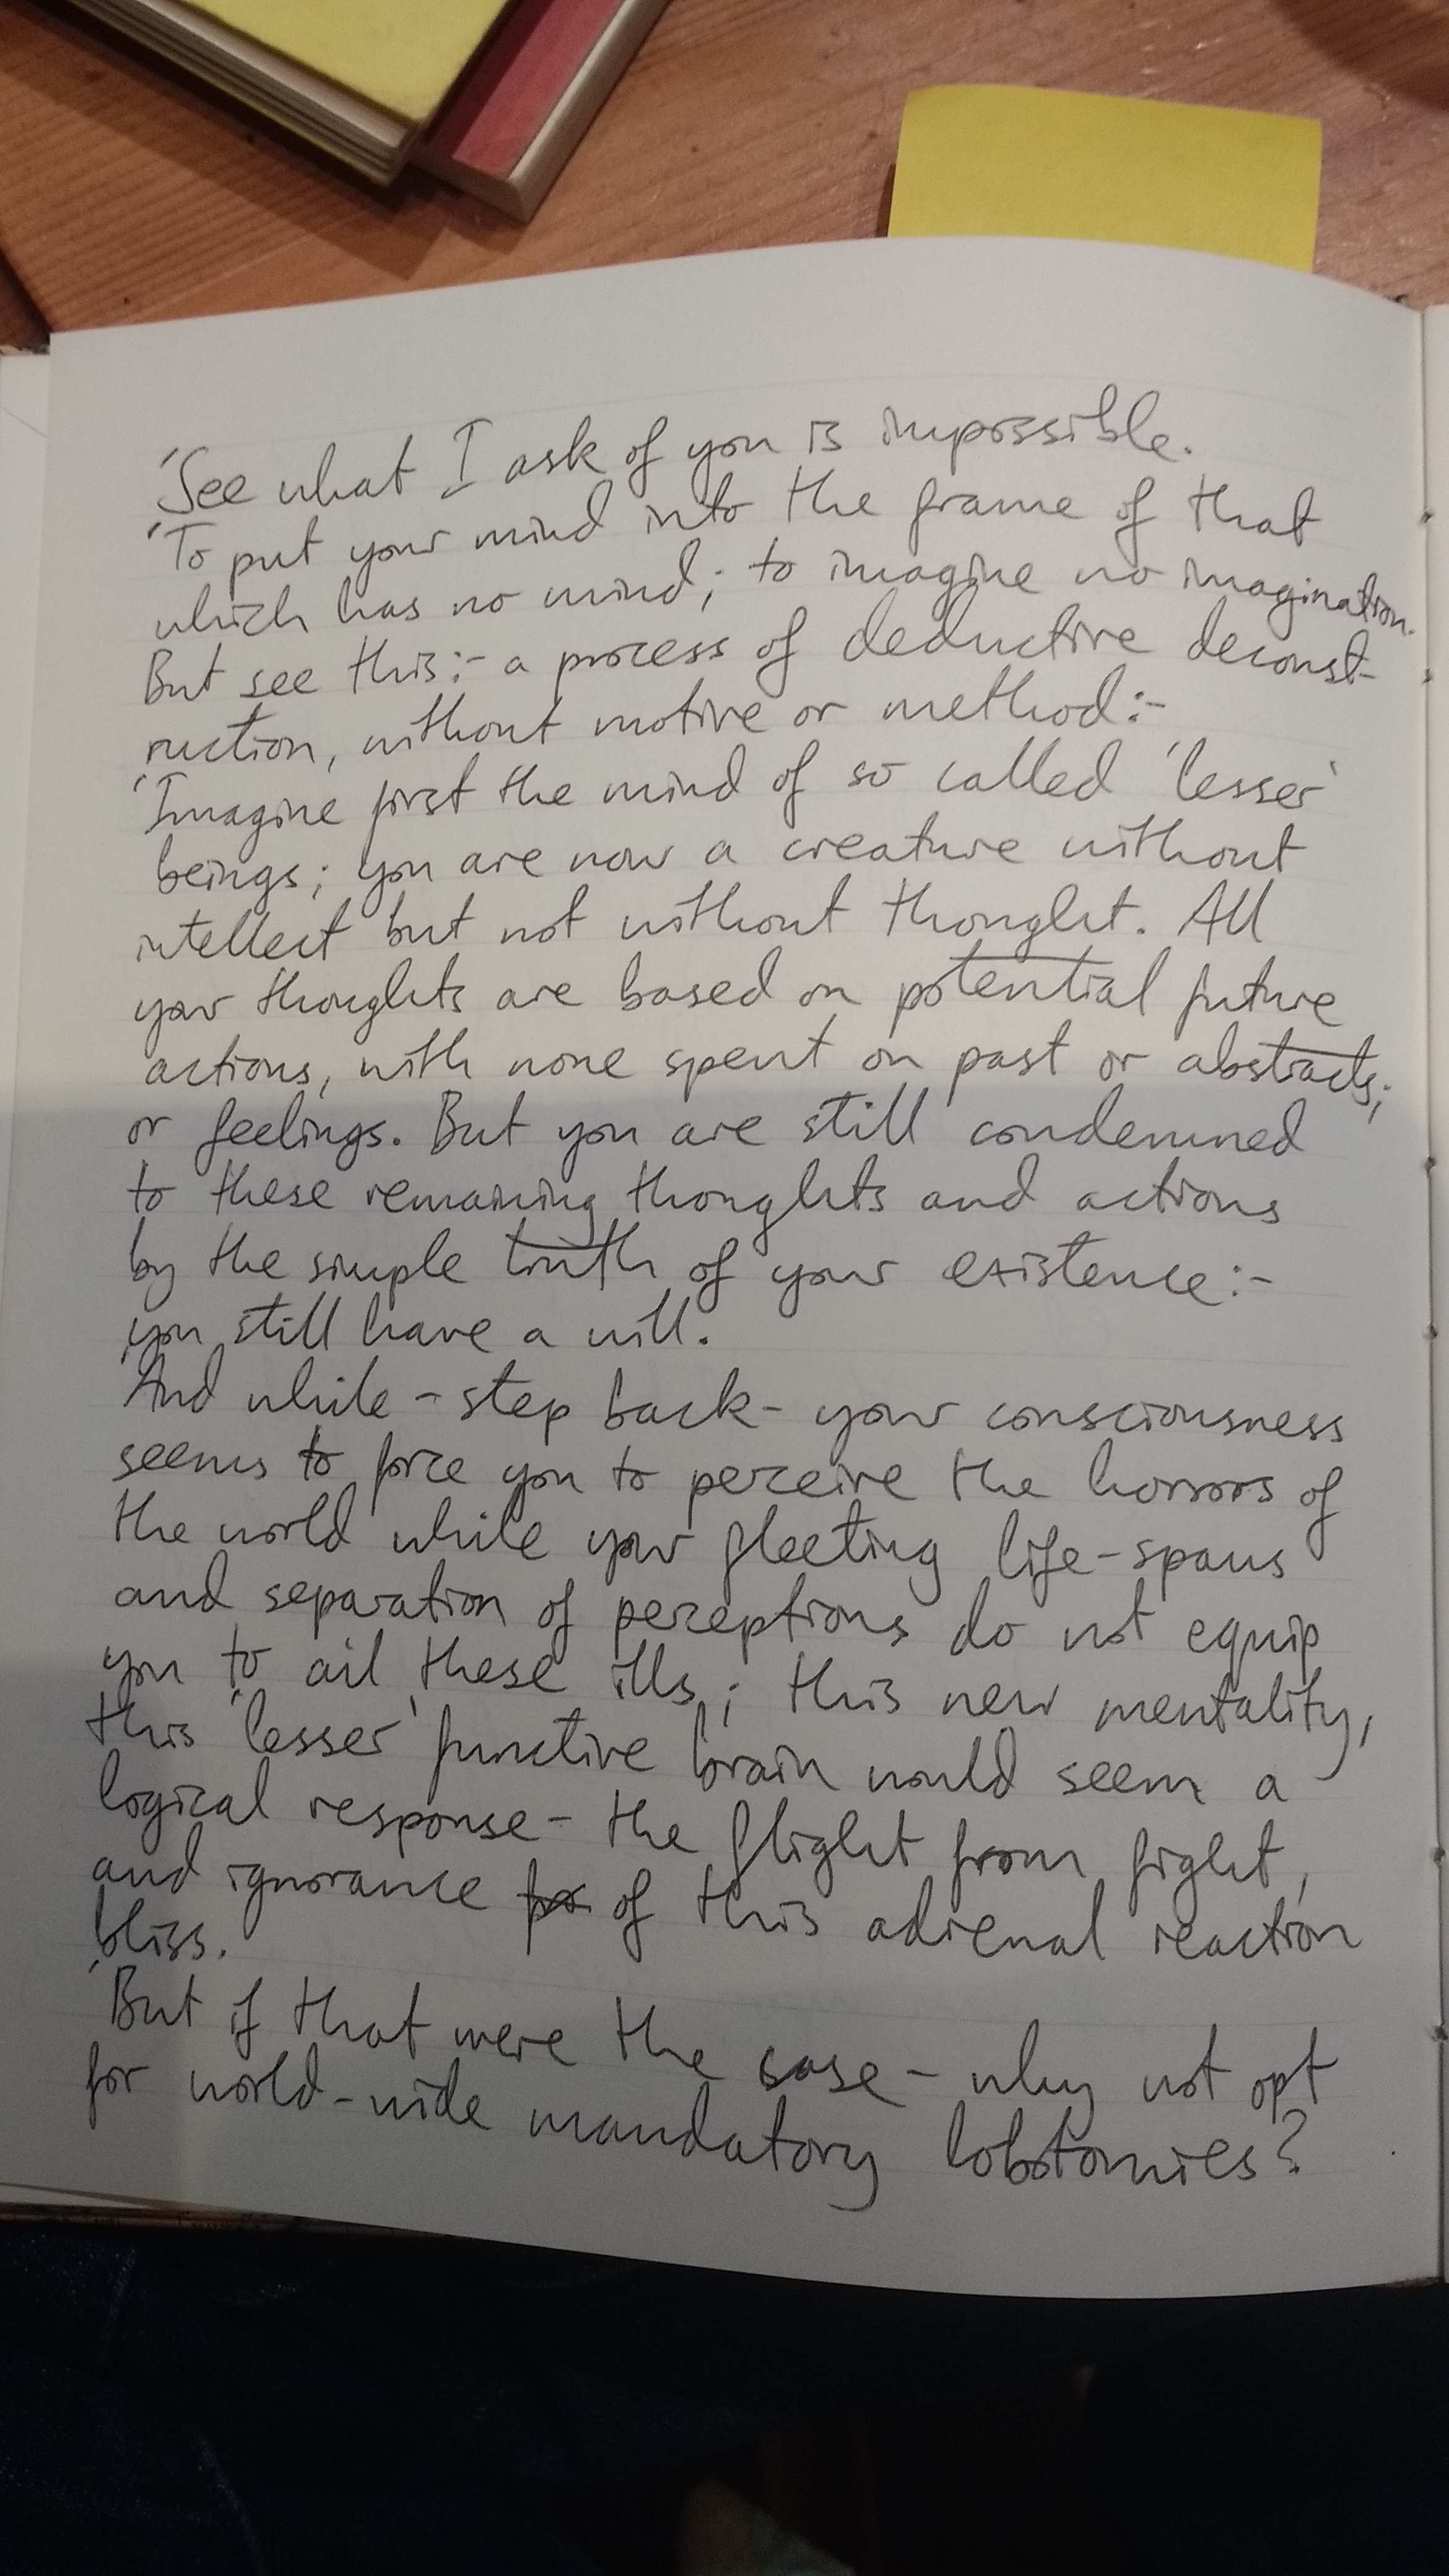 'See what I ask of you is impossible.
'To put your mind into the frame of that
which has no mind; to imagine no imagination.
But see this:- a process of deductive deconst-
ruction, without motive or method:-
'Imagine first the mind of so called 'lesser'
beings; you are now a creature without
intellect but not without thought. All
your thoughts are based on potential future
actions, with none spent on past or abstracts;
or feelings. But you are still condemned
to these remaining thoughts and actions
by the simple truth of your existence:-
you still have a will.
'And while - step back - your consciousness
seems to force you to perceive the horrors of
the world while your fleeting life-spans
and separation of perceptions do not equip
you to ail these ills; this new mentality,
this 'lesser' functive brain would seem a
logical response - the flight from fight,
and ignorance for of this adrenal reaction
bliss.
'But if that were the case - why not opt
for world-wide mandatory lobotomies?